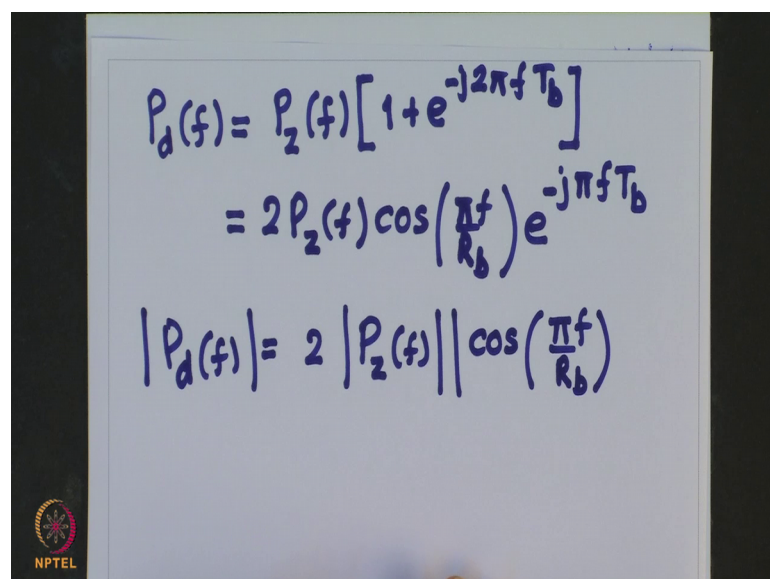 P_d(f) = P_z(f) [1 + e^{-j2πf T_b}]
= 2P_z(f) cos(πf/R_b) e^{-jπf T_b}
|P_d(f)| = 2 |P_z(f)| | cos(πf/R_b)
NPTEL